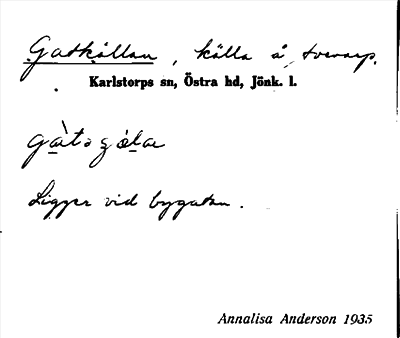 Gatkällan, källa å Tverarp.
Karlstorps sn, Östra hd, Jönk. l.
Ligger vid bygatan.
Annalisa Anderson 1935